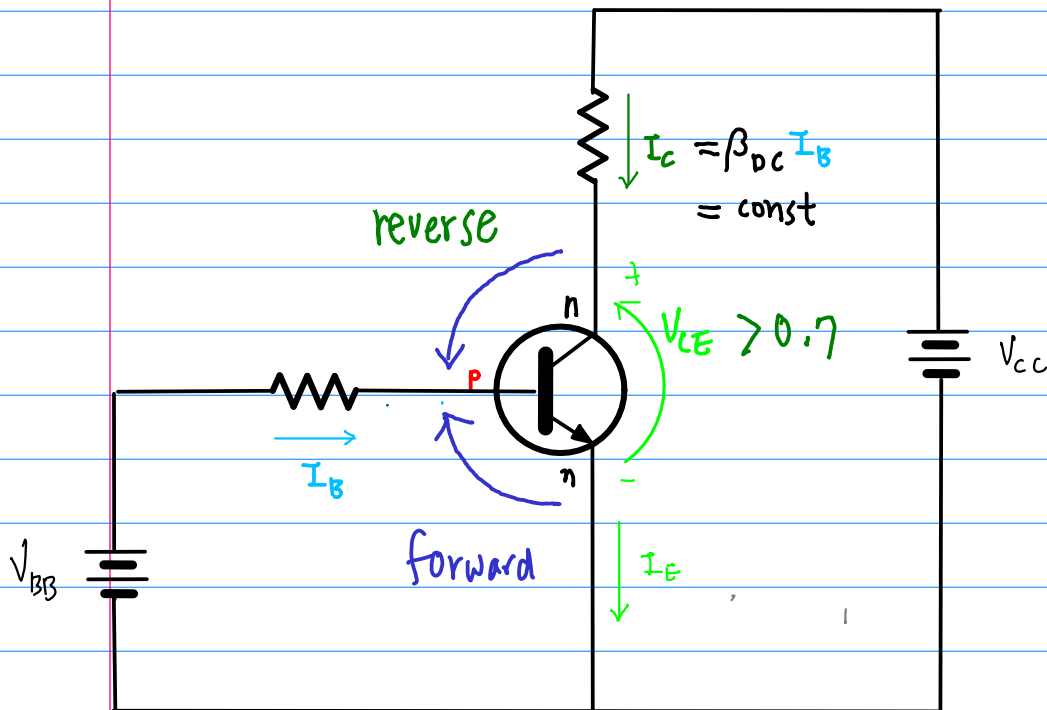 I_C = β_DC I_B
= const
reverse
+
n
V_CE > 0.7
V_CC
p
I_B
n
−
forward
I_E
V_BB